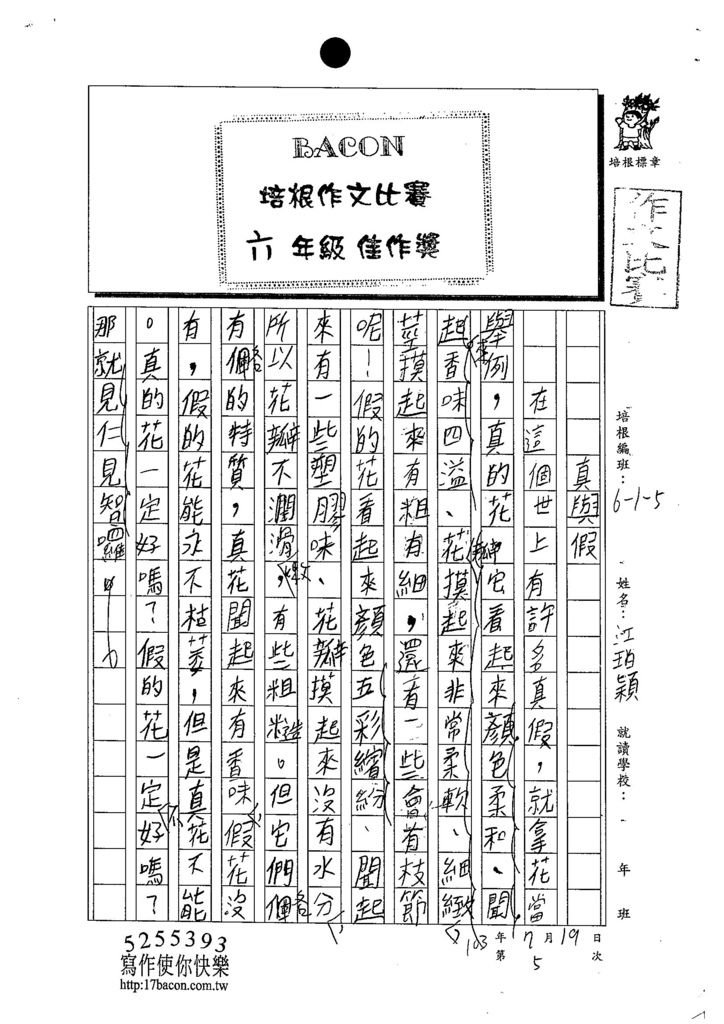 BACON
培根作文比賽
六年級佳作獎
培根標章
作文比賽
培根編班：6-1-5
姓名：江珀穎
就讀學校：
年
班
103年7月19日
第5次
真與假
在這個世上有許多真假，就拿花當
舉例，真的花它看起來顏色柔和、聞
起來香味四溢、花瓣摸起來非常柔軟、細緻
莖摸起來有粗有細，還有一些會有枝節
呢！假的花看起來顏色五彩繽紛、聞起
來有一些塑膠味、花瓣摸起來沒有水分
所以花瓣不潤滑，有些粗糙。但它們各
有各個的特質，真花聞起來有香味假花沒
有，假的花能永不枯萎，但是真花不能
。真的花一定好嗎？假的花一定不好嗎？
那就見仁見智囉！
5255393
寫作使你快樂
http:17bacon.com.tw